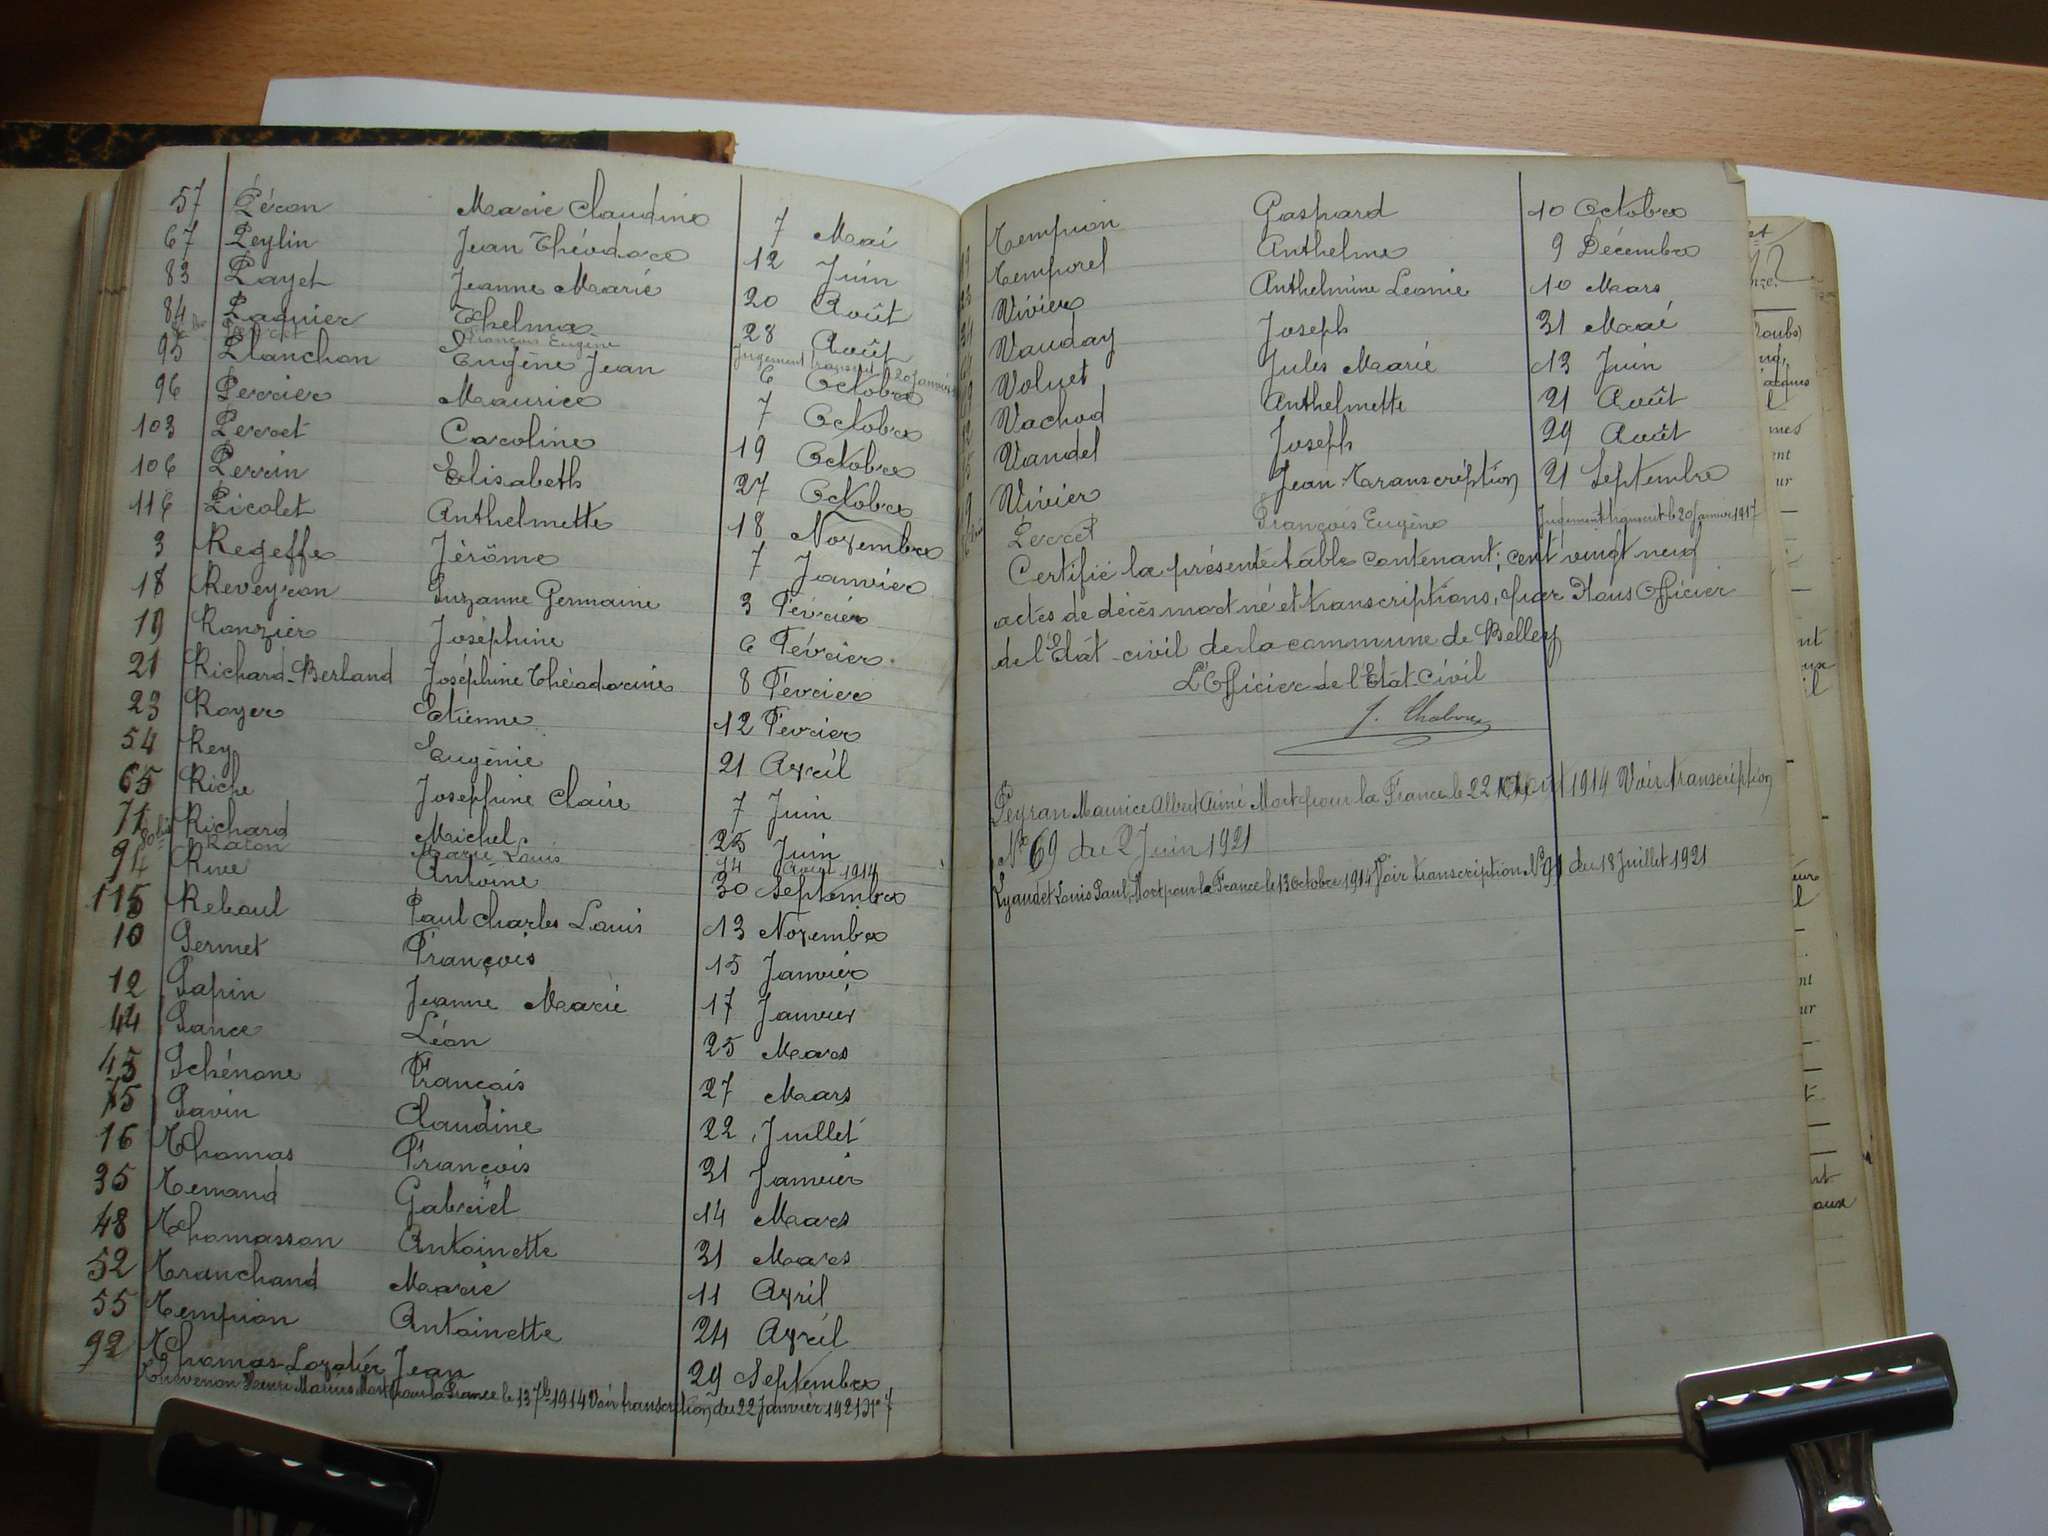 57 Péron Marie Claudine 7 Mai
67 Peylin Jean Théodore 12 Juin
83 Payet Jeanne Marie 20 Août
84 Paquier Thelma 28 Août
Perret François Eugène Jugement transcrit 20 Janvier
95 Planchon Eugène Jean 6 Octobre
96 Perrier Maurice 7 Octobre
103 Perret Caroline 19 Octobre
106 Perrin Elisabeth 27 Octobre
116 Picolet Anthelmette 18 Novembre
3 Regeffe Jérôme 7 Janvier
18 Reveyron Suzanne Germaine 3 Février
19 Ronzier Joséphine 6 Février
21 Richard-Berland Joséphine Théodorine 8 Février
23 Royer Etienne 12 Février
54 Rey Eugénie 21 Avril
65 Riche Joséphine Claire 7 Juin
71 Richard Michel 25 Juin
80 bis Raton Marie Louis 14 Août 1914
94 Rive Antoine 30 Septembre
115 Reboul Paul Charles Louis 13 Novembre
10 Sermet François 15 Janvier
12 Sapin Jeanne Marie 17 Janvier
44 Sance Léon 25 Mars
45 Schénone François 27 Mars
75 Savin Claudine 22 Juillet
16 Thomas François 31 Janvier
35 Tenand Gabriel 14 Mars
48 Thomasson Antoinette 31 Mars
52 Tranchand Marie 11 Avril
55 Tempion Antoinette 24 Avril
92 Thomas-Lovatier Jean 29 Septembre
Thevenon Henri Marius Mort pour la France le 13 7bre 1914 Voir transcription du 22 Janvier 1921 N° 7
Tempion Gaspard 10 Octobre
Temporel Anthelme 9 Décembre
Vivier Anthelmine Leonie 10 Mars
Vauday Joseph 31 Mai
Voluet Jules Marie 13 Juin
Vachod Anthelmette 21 Août
Vandel Joseph 29 Août
Vivier Jean Transcription 21 Septembre
Perret François Eugène Jugement transcrit le 20 Janvier 1917
Certifié la présente table contenant, cent vingt neuf
actes de décès mort né et transcriptions, par Nous Officier
de l'Etat civil de la commune de Belley
L'Officier de l'Etat Civil
Peyran Maurice Albert Aimé Mort pour la France le 22 Août 1914 Voir transcription
N° 69 du 2 Juin 1921
Lyaudet Louis Paul, Mort pour la France le 13 octobre 1914 Voir transcription N° 91 du 18 Juillet 1921